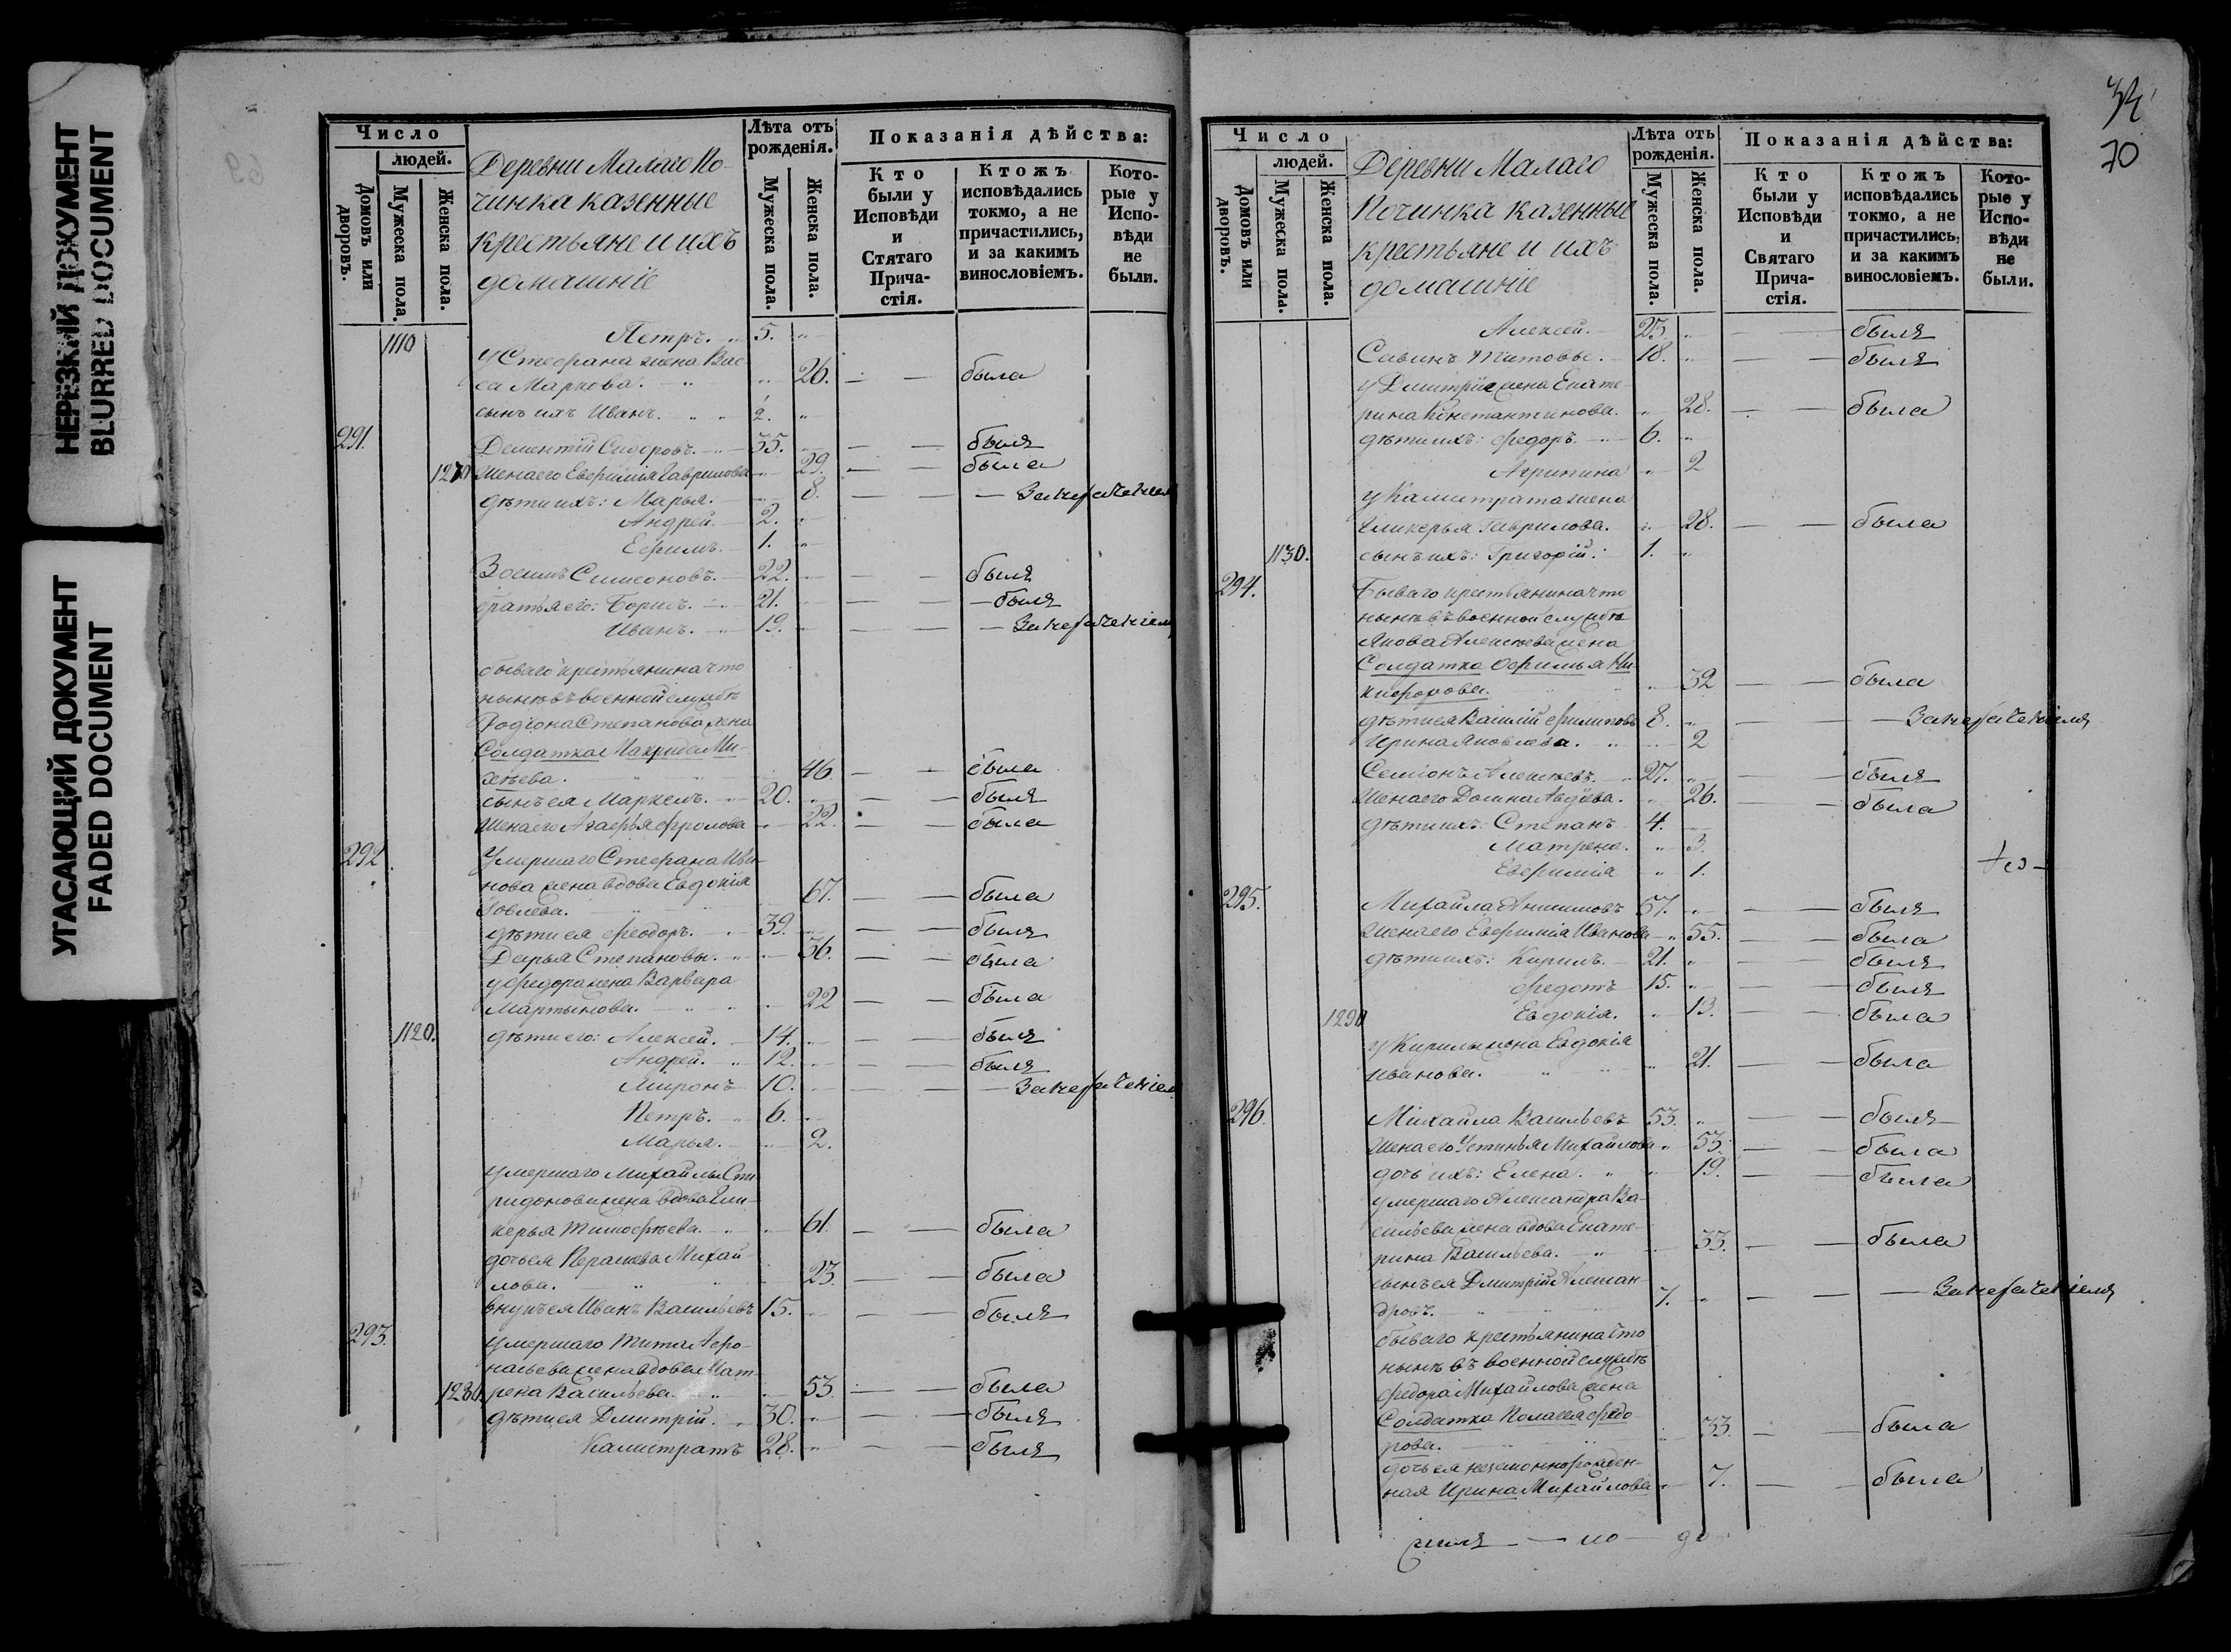 НЕРЕЗКИЙ ДОКУМЕНТ
BLURRED DOCUMENT
УГАСАЮЩИЙ ДОКУМЕНТ
FADED DOCUMENT
Число
людей.
Домовъ или дворовъ.
Мужеска пола.
Женска пола.
Деревни Малаго По-
чинка казенные
крестьяне и ихъ
домашніе
Лѣта отъ рожденія.
Мужеска пола.
Женска пола.
Показанія дѣйства:
Кто были у Исповѣди и Стятаго Прича-стія.
Ктожъ исповѣдались токмо, а не причастились, и за какимъ винословіемъ.
Кото-рые у Испо-вѣди не были.
1110 Петръ. 5.
У Стефана жена Вас-
са Маркова. 26. была
сынъ ихъ Иванъ. 2.
291. Дементій Сидоровъ. 35. былъ
Жена его Евфимія Гаврилова 29. была
дѣти ихъ: Марья. 8.
Андрей. 2.
Ефимъ. 1.
Симеоновъ. 22. былъ
братья его: Борисъ. 21. былъ
Иванъ. 19.
бываго крестьянина что
нынѣ въ военной службѣ
Родіона Степанова жена
Солдатка Макрида Ми-
хѣева. 46. была
сынъ ея Маркелъ. 20. былъ
Жена его Агафья Фролова 22. была
292 Умершаго Стефана Ива-
нова жена вдова Евдокія
67. была
дѣти ея Феодоръ. 39. былъ
Дарья Степановы. 36. была
у Федора жена Варвара
Мартынова. 22 была
1120. дѣти его: Алексей. 14. былъ
Андрей. 12. былъ
Миронъ 10.
Петръ. 6.
Марья. 2.
Умершаго Михайлы Спи-
ридонова жена вдова Гли-
керья Тимофѣева. 61. была
дочь ея Парасковья Михай-
лова. 23. была
внукъ ея Иванъ Васильевъ 15. былъ
293. Умершаго Тита Афо-
насьева жена вдова Мат-
1280. рена Васильева. 53. была
дѣти ея Дмитрій. 30. былъ
Калистратъ 28. былъ
70
Число
людей.
Домовъ или дворовъ.
Мужеска пола.
Женска пола.
Деревни Малаго
Починка казенные
крестьяне и ихъ
домашніе
Лѣта отъ рожденія.
Мужеска пола.
Женска пола.
Показанія дѣйства:
Кто были у Исповѣди и Святаго Прича-стія.
Ктожъ исповѣдались токмо, а не причастились, и за какимъ винословіемъ.
Кото-рые у Испо-вѣди не были.
Алексей. 25. былъ
Савинъ Титовы. 18. былъ
у Дмитрія жена Екате-
рина Константинова. 28. была
дѣти ихъ: Федоръ. 6.
Агрипина 2
у Калистрата жена
Гликерья Гаврилова. 28. была
1130. сынъ ихъ: Григорій. 1.
294. Бываго крестьянина что
нынѣ въ военной службѣ
Якова Алексѣева жена
Солдатка Офимья Ни-
кифорова. 32 была
дѣти ея Василій Филиповъ 8.
Ирина Яковлева. 2
Семіонъ Алексѣевъ. 27. былъ
Жена его Домна Авдѣева. 26. была
дѣти ихъ: Степанъ 4.
Матрена. 3.
Евфимія 1.
295. Михайла Анисимовъ 57. былъ
Жена его Евфимія Иванова 55. была
дѣти ихъ: Кирилъ. 21. былъ
Федотъ 15. былъ
1290 Евдокія. 13. была
у Кирилы жена Евдокія
Иванова. 21. была
296. Михайла Васильевъ 53. былъ
Жена его Устинья Михайлова 53. была
дочь ихъ: Елена. 19. была
умершаго Александра Ва-
сильева жена вдова Екате-
рина Васильева. 33. была
сынъ ея Дмитрій Алексан-
дровъ. 7.
бываго крестьянина что
нынѣ въ военной службѣ
Федора Михайлова жена
Солдатка Федо-
рова. 33. была
дочь ея незаконнорожден-
ная Ирина Михайлова 7. была